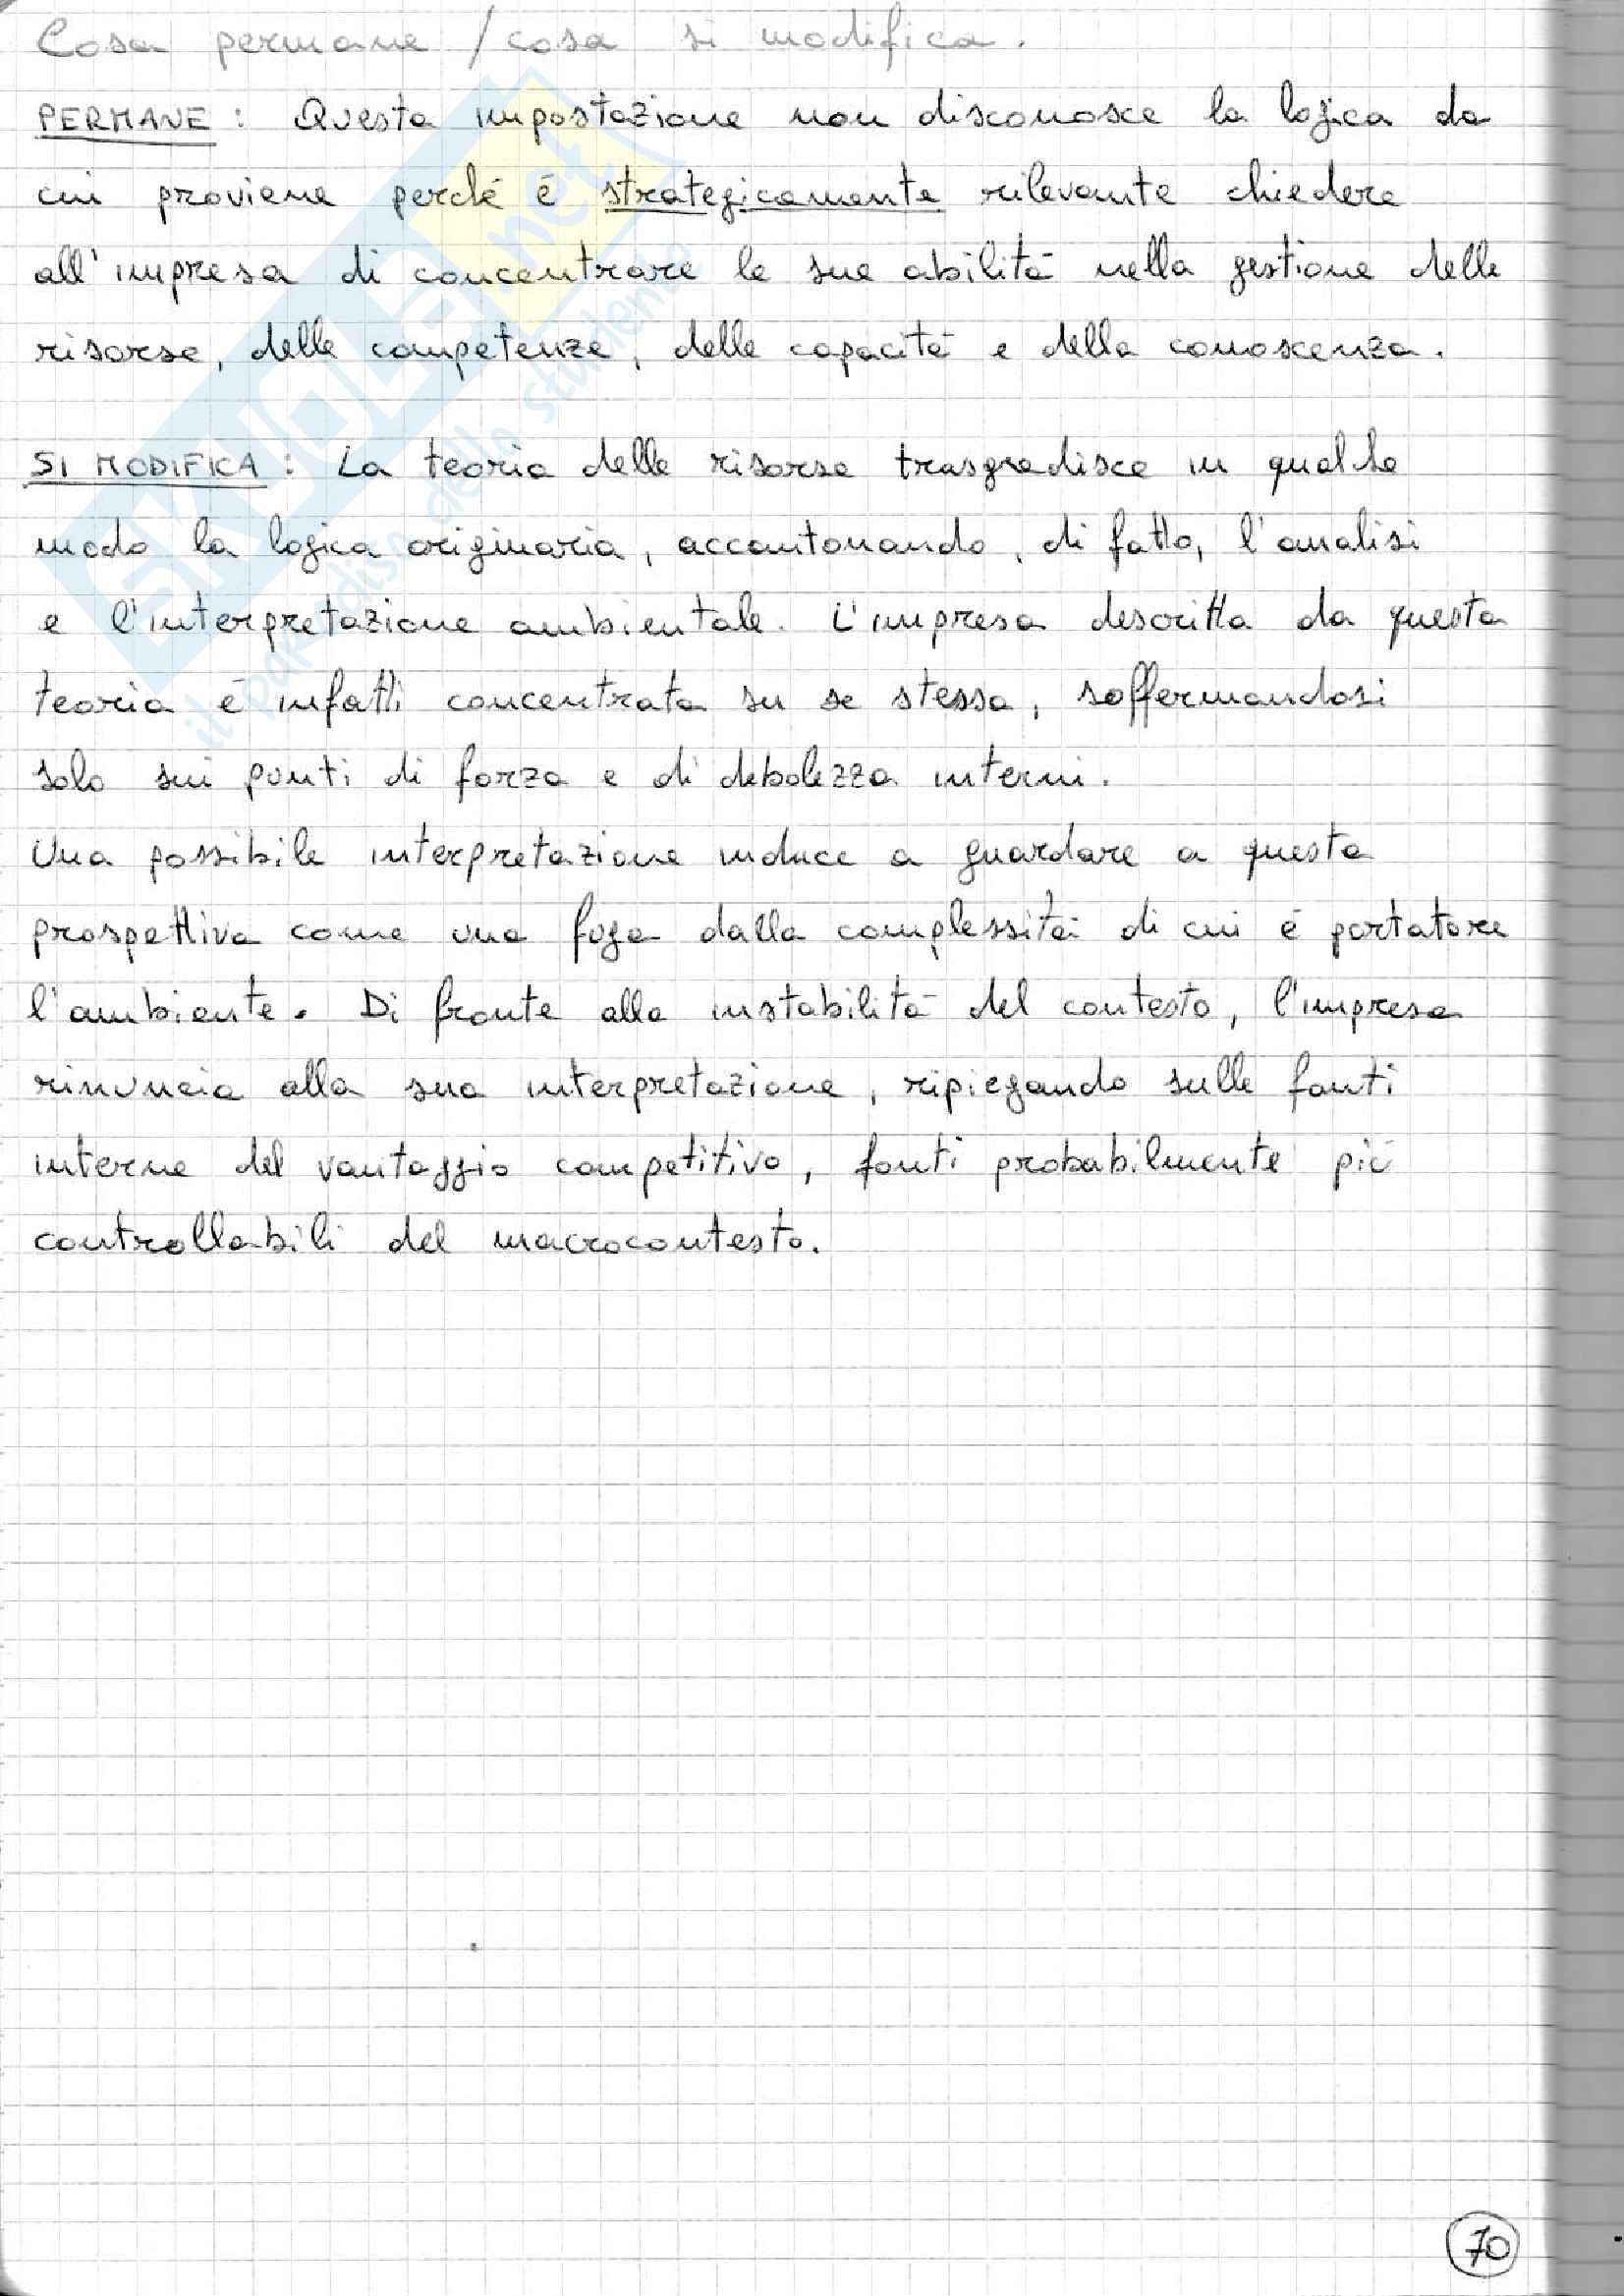 Cosa permane / cosa si modifica.
PERMANE : Questa impostazione non disconosce la logica da
cui proviene perché è strategicamente rilevante chiedere
all'impresa di concentrare le sue abilità nella gestione delle
risorse, delle competenze, delle capacità e della conoscenza.
SI MODIFICA : La teoria delle risorse trasgredisce in qualche
modo la logica originaria, accantonando, di fatto, l'analisi
e l'interpretazione ambientale. L'impresa descritta da questa
teoria è infatti concentrata su se stessa, soffermandosi
solo sui punti di forza e di debolezza interni.
Una possibile interpretazione induce a guardare a questa
prospettiva come una fuga dalla complessità di cui è portatore
l'ambiente. Di fronte alla instabilità del contesto, l'impresa
rinuncia alla sua interpretazione, ripiegando sulle fonti
interne del vantaggio competitivo, fonti probabilmente più
controllabili del macrocontesto.
70
SKUOLA.net
il paradiso dello studente